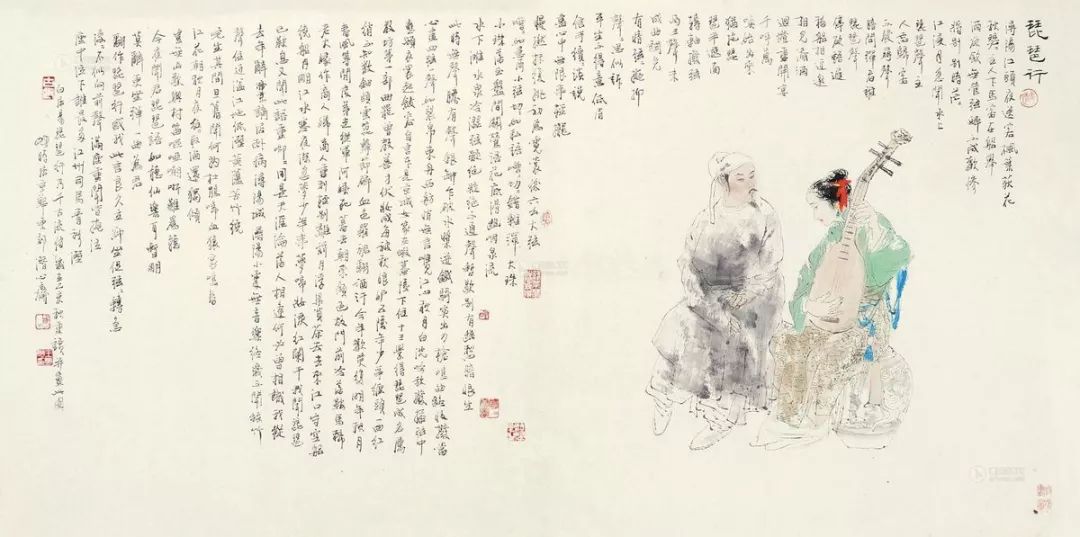 琵琶行
潯陽江頭夜送客楓葉荻花
秋瑟瑟主人下馬客在船舉
酒欲飲無管弦醉不成歡慘
將別別時茫茫
江浸月忽聞水上
琵琶聲主
人忘歸客
不發尋聲
暗問彈者誰
琵琶聲
停欲語遲
移船相近邀
相見添酒
迴燈重開宴
千呼萬
喚始出來
猶抱琵
琶半遮面
轉軸撥弦
兩三聲未
成曲調先
有情弦弦掩抑
聲聲思似訴
平生不得意低眉
信手續續彈說
盡心中無限事輕攏
慢撚抹復挑初為霓裳後六么大弦
嘈嘈如急雨小弦切切如私語嘈嘈切切錯雜彈大珠
小珠落玉盤間關鶯語花底滑幽咽泉流
水下灘水泉冷澀弦凝絕凝絕不通聲暫歇別有幽愁暗恨生
此時無聲勝有聲銀瓶乍破水漿迸鐵騎突出刀槍鳴曲終收撥當
心畫四弦一聲如裂帛東舟西舫悄無言唯見江心秋月白沉吟放撥插弦中
整頓衣裳起斂容自言本是京城女家在蝦蟆陵下住十三學得琵琶成名屬
教坊第一部曲罷曾教善才伏妝成每被秋娘妒五陵年少爭纏頭一曲紅
綃不知數鈿頭雲篦擊節碎血色羅裙翻酒污今年歡笑復明年秋月
春風等閑度弟走從軍阿姨死暮去朝來顏色故門前冷落鞍馬稀
老大嫁作商人婦商人重利輕別離前月浮梁買茶去去來江口守空船
繞船月明江水寒夜深忽夢少年事夢啼妝淚紅闌干我聞琵琶
已歎息又聞此語重唧唧同是天涯淪落人相逢何必曾相識我從
去年辭帝京謫居臥病潯陽城潯陽小處無音樂終歲不聞絲竹
聲住近湓江地低溼黃蘆苦竹繞
宅生其間旦暮聞何物杜鵑啼血猿哀鳴春
江花朝秋月夜往往取酒還獨傾
豈無山歌與村笛嘔啞嘲哳難為聽
今夜聞君琵琶語如聽仙樂耳暫明
莫辭更坐彈一曲為君
翻作琵琶行感我此言良久立卻坐促弦弦轉急
淒淒不似向前聲滿座重聞皆掩泣
座中泣下誰最多江州司馬青衫溼
白居易琵琶行乃千古絕唱